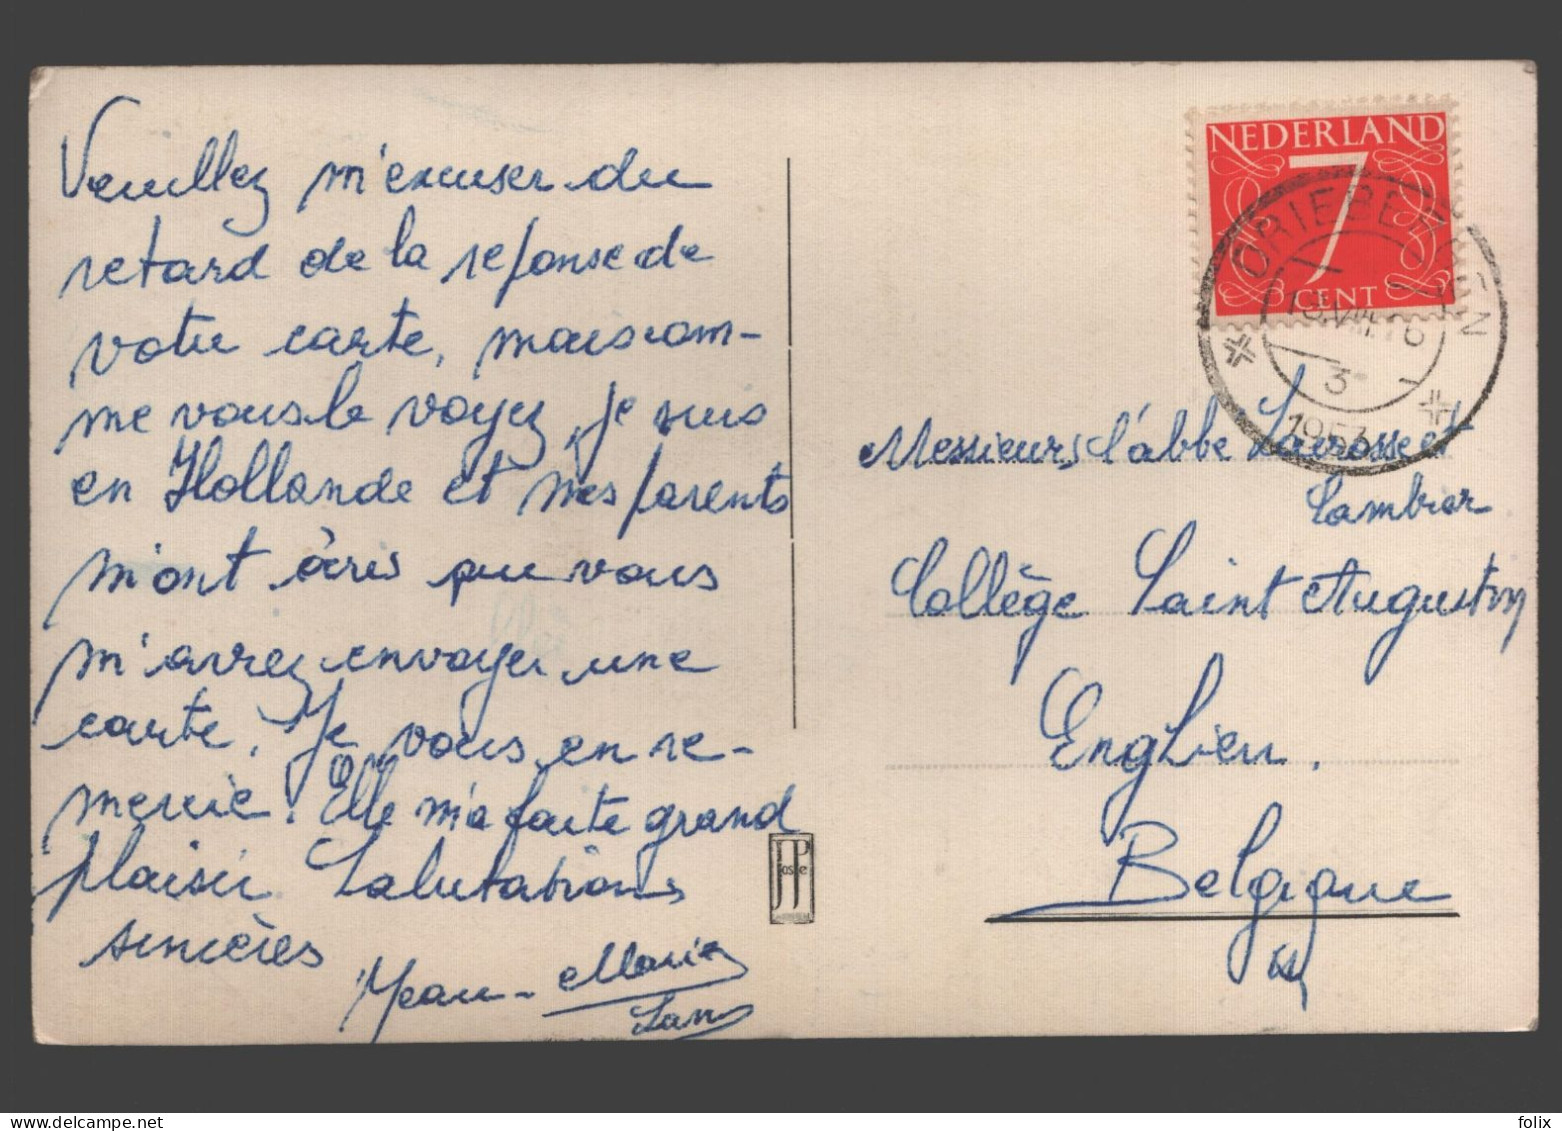 Veuillez m'excuser du
retard de la réponse de
votre carte, mais com-
me vous le voyez, je suis
en Hollande et mes parents
m'ont écris que vous
m'avrez envoyer une
carte. Je vous en re-
mercie. Elle m'a faite grand
plaisir Salutations
sincères
Jean-Marie
NEDERLAND
7
CENT
DRIEBERGEN
1953
Messieurs l'abbe Lacrosse et
Lambior
Collège Saint Augustin
Enghien.
Belgique
JP
Joste
www.delcampe.net
folix